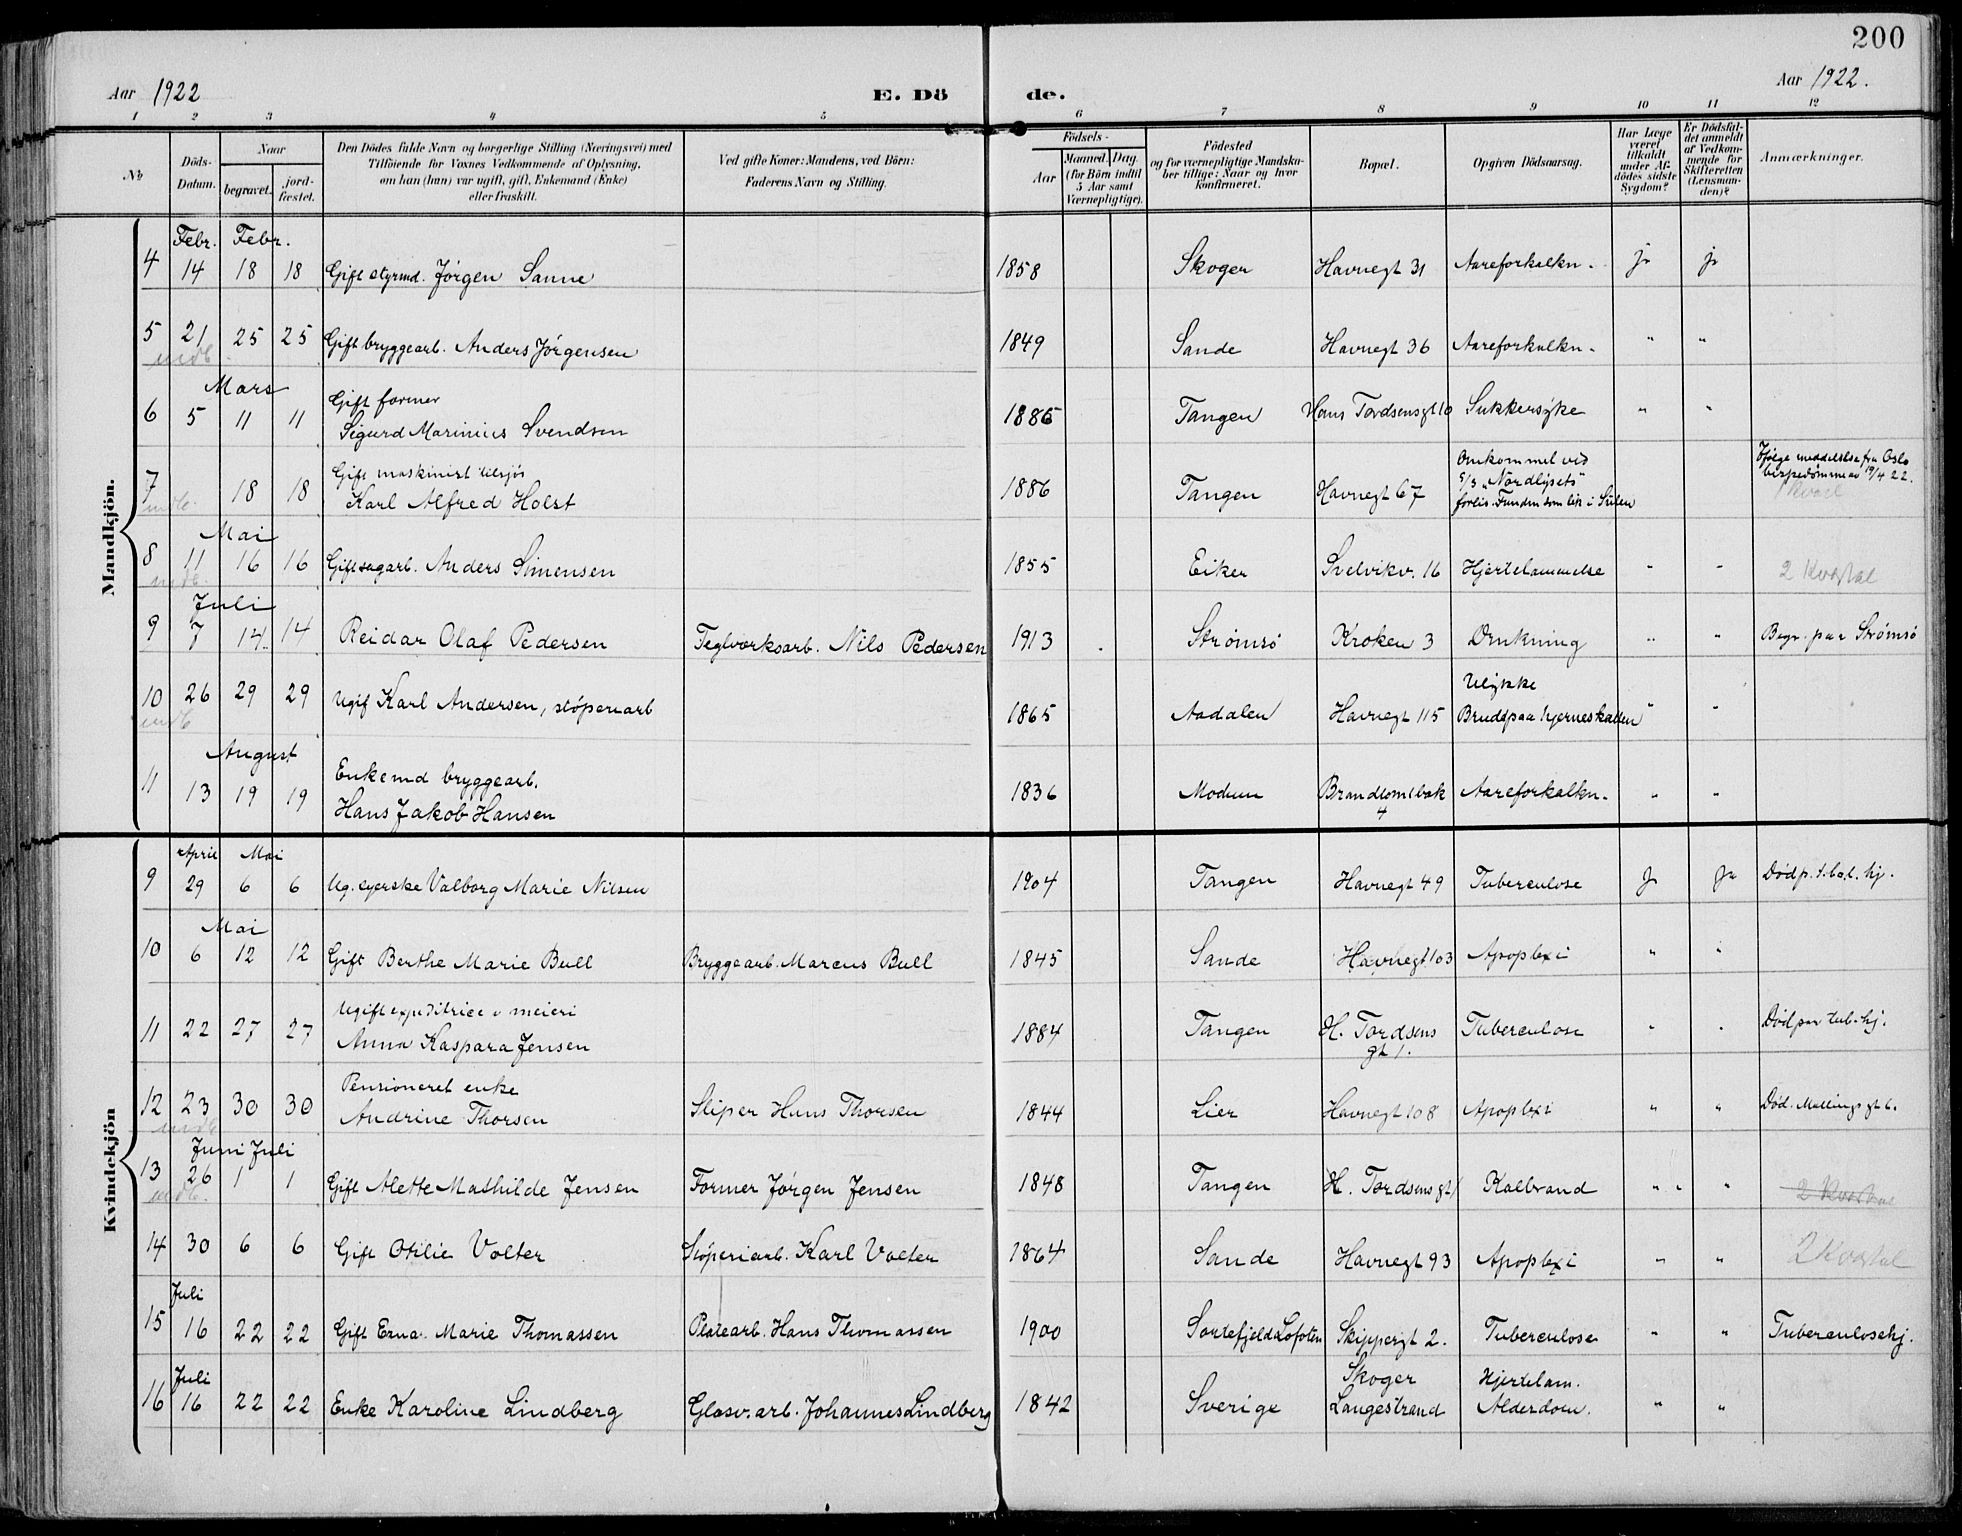 200
Aar 1922
E. Dö de.
Aar 1922.
1 2 3 4 5 6 7 8 9 10 11 12
№
Döds-Datum.
Naar
begravet.
jord-fæstet.
Den Dödes fulde Navn og borgerlige Stilling (Næringsvei) med
Tilföiende for Voxnes Vedkommende af Oplysning,
om han (hun) var ugift, gift, Enkemand (Enke)
eller fraskilt.
Ved gifte Koner: Mandens, ved Börn:
Faderens Navn og Stilling.
Födsels-
Aar
Maaned. Dag.
(for Börn indtil
5 Aar samt
Værnepligtige).
Födested
og for værnepligtige Mandska-
ber tillige: Naar og hvor
konfirmeret.
Bopæl.
Opgiven Dödsaarsag.
Har Læge
været
tilkaldt
under Af-
dödes sidste
Sygdom?
Er Dödsfal-
det anmeldt
af Vedkom-
mende for
Skifteretten
(Lensman-
den)?
Anmærkninger.
Mandkjön.
Febr. Febr.
4 14 18 18 Gift styrmd. Jørgen Sanne 1858 Skoger Havnegt 31 Aareforkalkn. ja ja
5 21 25 25 Gift bryggearb. Anders Jørgensen 1849 Sande Havnegt 36 Aareforkalkn. " "
indb.
Mars
Gift former
6 5 11 11 Sigurd Marinius Svendsen 1886 Tangen Hans Tordsensgt 10 Sukkersyke " "
Gift maskinist tilsjøs
7 18 18 Karl Alfred Holst 1886 Tangen Havnegt 67 Omkommet ved
5/3 "Nordlysets"
forlis. Funden som lik i
Ifølge meddelelse fra Oslo
bispedømme av 19/4 22.
1 Kvart
indb.
Mai
8 11 16 16 Gift sagarb. Anders Simensen 1855 Eiker Svelvikv. 16 Hjertelammelse " " 2 Kvartal
indb.
Juli
9 7 14 14 Reidar Olaf Pedersen Teglverksarb. Nils Pedersen 1913 Strømsø Kroken 3 Drukning " " Begr. paa Strømsø
Ulykke
10 26 29 29 Ugif Karl Andersen, støperiarb 1865 Aadalen Havnegt 115 Brudd paa hjerneskallen " "
indb
August
Enkemd bryggearb.
11 13 19 19 Hans Jakob Hansen 1836 Modum 4 Aareforkalkn. " "
Kvindekjön
April Mai
9 29 6 6 Ug. syerske Valborg Marie Nilsen 1904 Tangen Havnegt 49 Tuberculose ja ja Død p. t.
Mai
10 6 12 12 Gift Berthe Marie Bull Bryggearb. Marcus Bull 1845 Sande Havnegt 103 Apoplexi " "
Ugift expeditrice i meieri
11 22 27 27 Anna Kaspara Jensen 1884 Tangen H. Tordsens
gt 1. Tuberculose " " Død paa tub. hj.
Pensioneret enke
12 23 30 30 Andrine Thorsen Sliper Hans Thorsen 1844 Lier Havnegt 108 Apoplexi " " Død. Mallings gt 6.
indb
Juni Juli
13 26 1 1 Gift Alette Mathilde Jensen Former Jørgen Jensen 1848 Tangen H. Tordsensgt 1 Kolbrand " " " 2 Kvartal
indb.
14 30 6 6 Gift Otilie Volter Støperiarb. Karl Volter 1864 Sande Havnegt 93 Apoplexi " " 2 Kvartal
Juli
15 16 22 22 Gift Erna Marie Thomassen Platearb. Hans Thomassen 1900 Sortefjeld Lofoten Skippergt 2. Tuberculose " " Tuberculosehj.
Juli
16 16 22 22 Enke Karoline Lindberg Glasv. arb. Johannes Lindberg 1842 Sverige Skoger
Langestrand Hjertelam.
Alderdom. " "